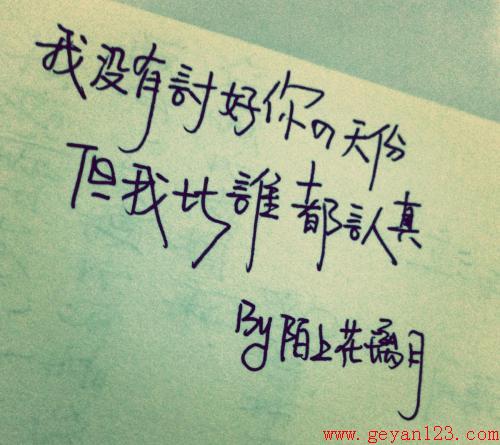 我没有討好你の天份
但我比誰都認真
By陌上花离月
www.geyan123.com